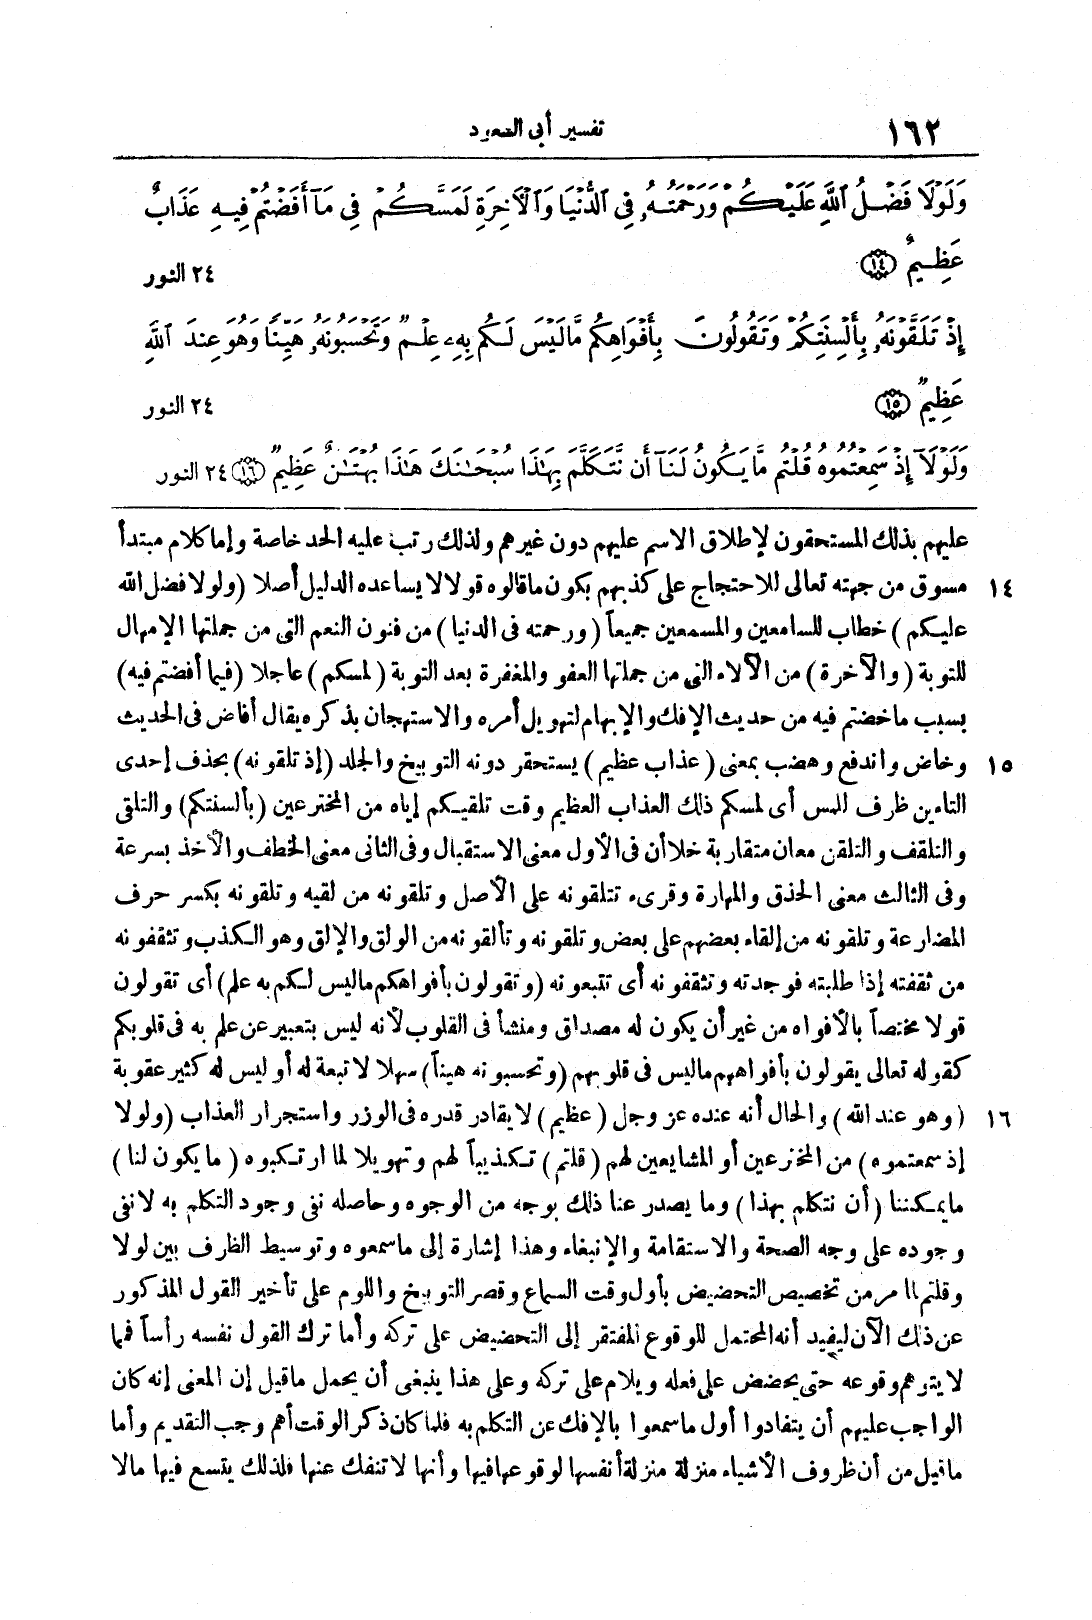 ١٦٢ تفسير أبى السعود
وَلَوْلَا فَضْلُ ٱللَّهِ عَلَيْكُمْ وَرَحْمَتُهُۥ فِى ٱلدُّنْيَا وَٱلْآخِرَةِ لَمَسَّكُمْ فِى مَآ أَفَضْتُمْ فِيهِ عَذَابٌ
عَظِيمٌ ﴿١٤﴾ ٢٤ النور
إِذْ تَلَقَّوْنَهُۥ بِأَلْسِنَتِكُمْ وَتَقُولُونَ بِأَفْوَاهِكُم مَّا لَيْسَ لَكُم بِهِۦ عِلْمٌ وَتَحْسَبُونَهُۥ هَيِّنًا وَهُوَ عِندَ ٱللَّهِ
عَظِيمٌ ﴿١٥﴾ ٢٤ النور
وَلَوْلَآ إِذْ سَمِعْتُمُوهُ قُلْتُم مَّا يَكُونُ لَنَآ أَن نَّتَكَلَّمَ بِهَٰذَا سُبْحَٰنَكَ هَٰذَا بُهْتَٰنٌ عَظِيمٌ ﴿١٦﴾ ٢٤ النور
عليهم بذلك المستحقون لإطلاق الاسم عليهم دون غيرهم ولذلك رتب عليه الحد خاصة وإما كلام مبتدأ
١٤ مسوق من جهته تعالى للاحتجاج على كذبهم بكون ما قالوه قولا لا يساعده الدليل أصلا (ولولا فضل الله
عليكم) خطاب للسامعين والمسمعين جميعاً (ورحمته فى الدنيا) من فنون النعم التى من جملتها الإمهال
للتوبة (والآخرة) من الآلاء التى من جملتها العفو والمغفرة بعد التوبة (لمسكم) عاجلا (فيما أفضتم فيه)
بسبب ما خضتم فيه من حديث الإفك والإبهام لتهويل أمره والاستهجان بذكره يقال أفاض فى الحديث
١٥ وخاض واندفع وهضب بمعنى (عذاب عظيم) يستحقر دونه التوبيخ والجلد (إذ تلقونه) بحذف إحدى
التاءين ظرف للمس أى لمسكم ذلك العذاب العظيم وقت تلقيكم إياه من المخترعين (بألسنتكم) والتلقى
والتلقف والتلقن معان متقاربة خلا أن فى الأول معنى الاستقبال وفى الثانى معنى الخطف والأخذ بسرعة
وفى الثالث معنى الحذق والمهارة وقرىء تتلقونه على الأصل وتلقونه من لقيه وتلقونه بكسر حرف
المضارعة وتلقونه من إلقاء بعضهم على بعض وتلقونه وتألقونه من الولق والإلق وهو الكذب وتثقفونه
من ثقفته إذا طلبته فوجدته وتثقفونه أى تتبعونه (وتقولون بأفواهكم ما ليس لكم به علم) أى تقولون
قولا مختصاً بالأفواه من غير أن يكون له مصداق ومنشأ فى القلوب لأنه ليس بتعبير عن علم به فى قلوبكم
كقوله تعالى يقولون بأفواههم ما ليس فى قلوبهم (وتحسبونه هيناً) سهلا لا تبعة له أو ليس له كثير عقوبة
١٦ (وهو عند الله) والحال أنه عنده عز وجل (عظيم) لا يقادر قدره فى الوزر واستجرار العذاب (ولولا
إذ سمعتموه) من المخترعين أو المشايعين لهم (قلتم) تكذيباً لهم وتهويلا لما ارتكبوه (ما يكون لنا)
ما يمكننا (أن نتكلم بهذا) وما يصدر عنا ذلك بوجه من الوجوه وحاصله نفى وجود التكلم به لا نفى
وجوده على وجه الصحة والاستقامة والإنبغاء وهذا إشارة إلى ما سمعوه وتوسيط الظرف بين لولا
وقلتم لما مر من تخصيص التحضيض بأول وقت السماع وقصر التوبيخ واللوم على تأخير القول المذكور
عن ذلك الآن ليفيد أنه المحتمل للوقوع المفتقر إلى التحضيض على تركه وأما ترك القول نفسه رأساً فمما
لا يتوهم وقوعه حتى يحضض على فعله ويلام على تركه وعلى هذا ينبغى أن يحمل ما قيل إن المعنى إنه كان
الواجب عليهم أن يتفادوا أول ما سمعوا بالإفك عن التكلم به فلما كان ذكر الوقت أهم وجب التقديم وأما
ما قيل من أن ظروف الأشياء منزلة منزلة أنفسها لوقوعها فيها وأنها لا تنفك عنها فلذلك يتسع فيها ما لا